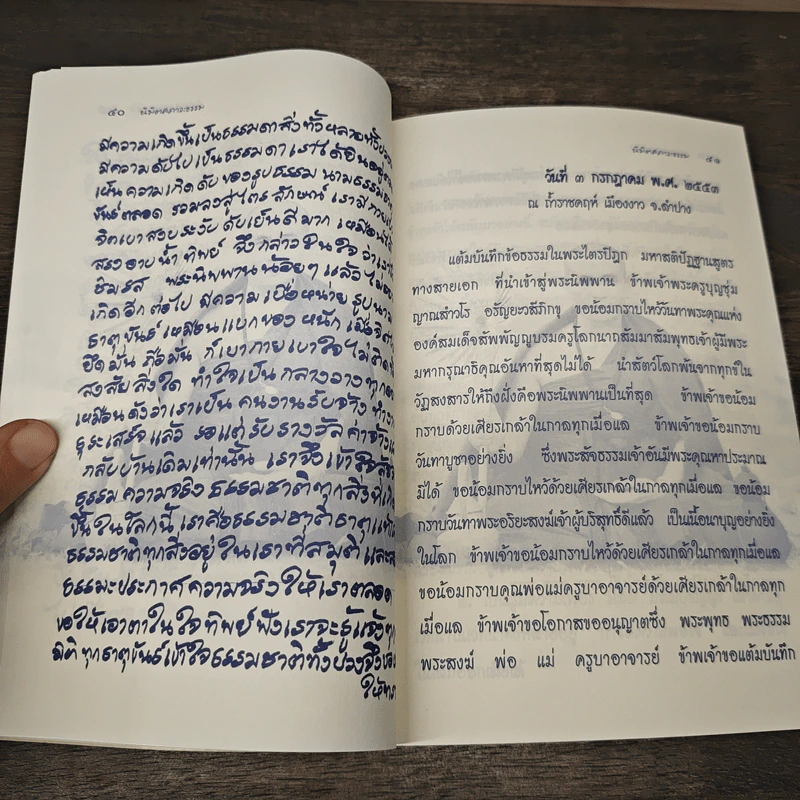 ๔๐ นิมิตสภาวะธรรม
มีความเกิดขึ้นเป็นธรรมดาสิ่งทั้งหลาย
มีความดับไปเป็นธรรมดา เราได้
เห็นความเกิดดับของรูปธรรม นามธรรม
ขันธ์ตลอด รวมลงสู่ไตรลักษณ์ เรามีกาย
จิตเบาสงบระงับดับเย็นดีมาก เหมือน
สรงอาบน้ำทิพย์ จึงกล่าวในใจว่า
ชิมรส พระนิพพานน้อยๆ แล้ว ไม่
เกิดอีกต่อไป มีความเบื่อหน่าย รูปนาม
ธาตุขันธ์เหมือนแบกของหนัก เมื่อจิต
ยึดมั่น ถือมั่น ก็เบากายเบาใจไม่ติด
สงสัยสิ่งใด ทำใจเป็นกลางวางทุก
เหมือนดังว่าเราเป็น คนงานรับจ้าง ทำ
ธุระเสร็จแล้ว รอแต่รับรางวัล ค่าจ้าง
กลับบ้านเดิมเท่านั้น เราจึงเข้าใจ
ธรรม ความจริง ธรรมชาติทุกสิ่งที่เกิด
ขึ้นในโลกนี้ เราคือธรรมชาติธาตุ
ธรรมชาติทุกสิ่งอยู่ในเราที่สมมุติ และ
ธรรมะประกาศความจริงให้เราตลอด
ขอให้เอาตาในใจทิพย์ฟังเราจะรู้แจ้ง
มิติ ทุกธาตุขันธ์เข้าใจธรรมชาติทั้งปวงจึง
นิมิตสภาวะธรรม ๔๑
วันที่ ๓ กรกฎาคม พ.ศ. ๒๕๕๓
ณ ถ้ำราชคฤห์ เมืองงาว จ.ลำปาง
แต้มบันทึกข้อธรรมในพระไตรปิฎก มหาสติปัฏฐานสูตร
ทางสายเอก ที่นำเข้าสู่พระนิพพาน ข้าพเจ้าพระครูบาบุญชุ่ม
ญาณสํวโร อรัญยะวสีภิกขุ ขอน้อมกราบไหว้วันทาพระคุณแห่ง
องค์สมเด็จสัพพัญญูบรมครูโลกนาถสัมมาสัมพุทธเจ้าผู้มีพระ
มหากรุณาธิคุณอันหาที่สุดไม่ได้ นำสัตว์โลกพ้นจากทุกข์ใน
วัฏสงสารให้ถึงฝั่งคือพระนิพพานเป็นที่สุด ข้าพเจ้าขอน้อม
กราบด้วยเศียรเกล้าในกาลทุกเมื่อแล ข้าพเจ้าขอน้อมกราบ
วันทาบูชาอย่างยิ่ง ซึ่งพระสัจธรรมเจ้าอันมีพระคุณหาประมาณ
มิได้ ขอน้อมกราบไหว้ด้วยเศียรเกล้าในกาลทุกเมื่อแล ขอน้อม
กราบวันทาพระอริยะสงฆ์เจ้าผู้บริสุทธิ์ดีแล้ว เป็นเนื้อนาบุญอย่างยิ่ง
ในโลก ข้าพเจ้าขอน้อมกราบไหว้ด้วยเศียรเกล้าในกาลทุกเมื่อแล
ขอน้อมกราบคุณพ่อแม่ครูบาอาจารย์ด้วยเศียรเกล้าในกาลทุก
เมื่อแล ข้าพเจ้าขอโอกาสขออนุญาตซึ่ง พระพุทธ พระธรรม
พระสงฆ์ พ่อ แม่ ครูบาอาจารย์ ข้าพเจ้าขอแต้มบันทึก